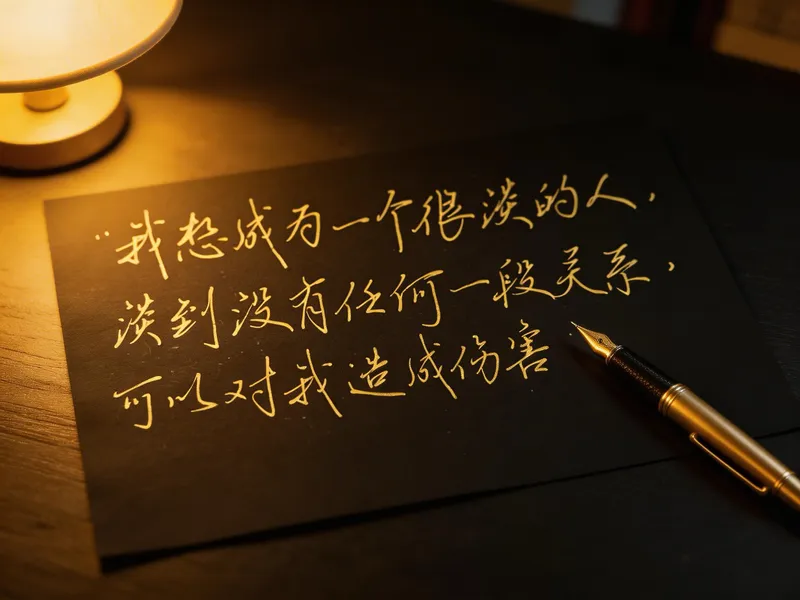 “我想成为一个很淡的人，
淡到没有任何一段关系，
可以对我造成伤害